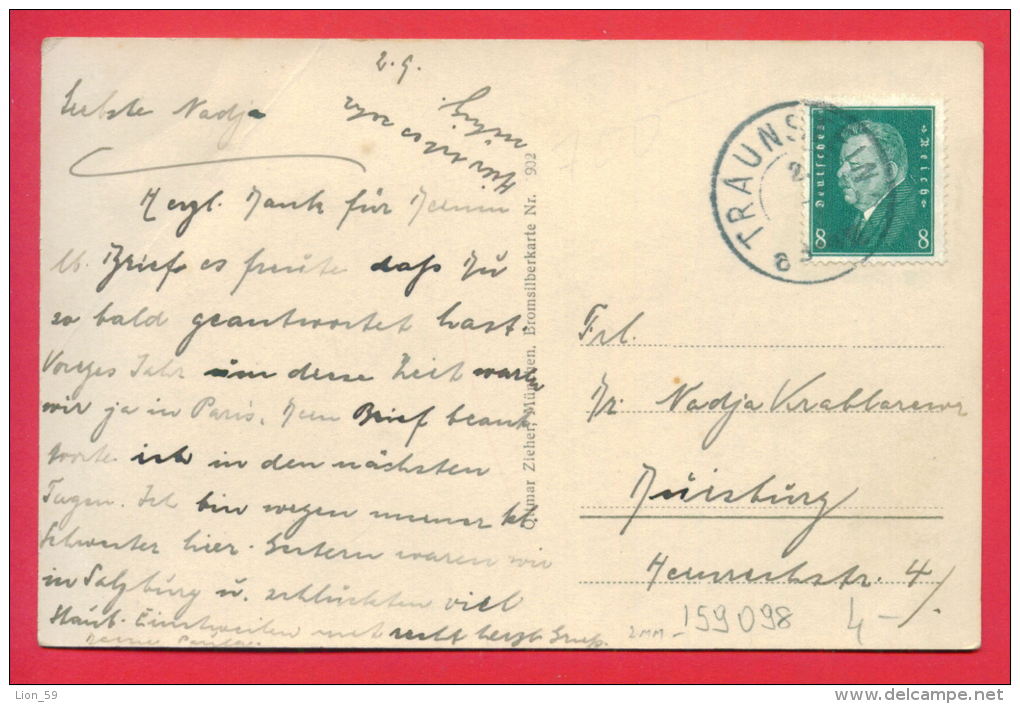 2. 9.
Liebste Nadja
Herzl. Dank für Deinen
lb. Brief es freute daß Du
so bald geantwortet hast.
Voriges Jahr um diese Zeit waren
wir ja in Paris. Dein Brief beant
worte ich in den nächsten
Tagen. Ich bin wegen meiner kl.
Schwester hier. Gestern waren wir
in Salzburg u. schluckten viel
Staub. Einstweilen mit recht herzl. Gruß
Ottmar Zieher, München. Bromsilberkarte Nr. 902
TRAUNSTEIN
Deutsches Reich
8 8
Frl.
Dr. Nadja
Duisburg
4
159098
4-
2mm-
Lion_59
www.delcampe.net